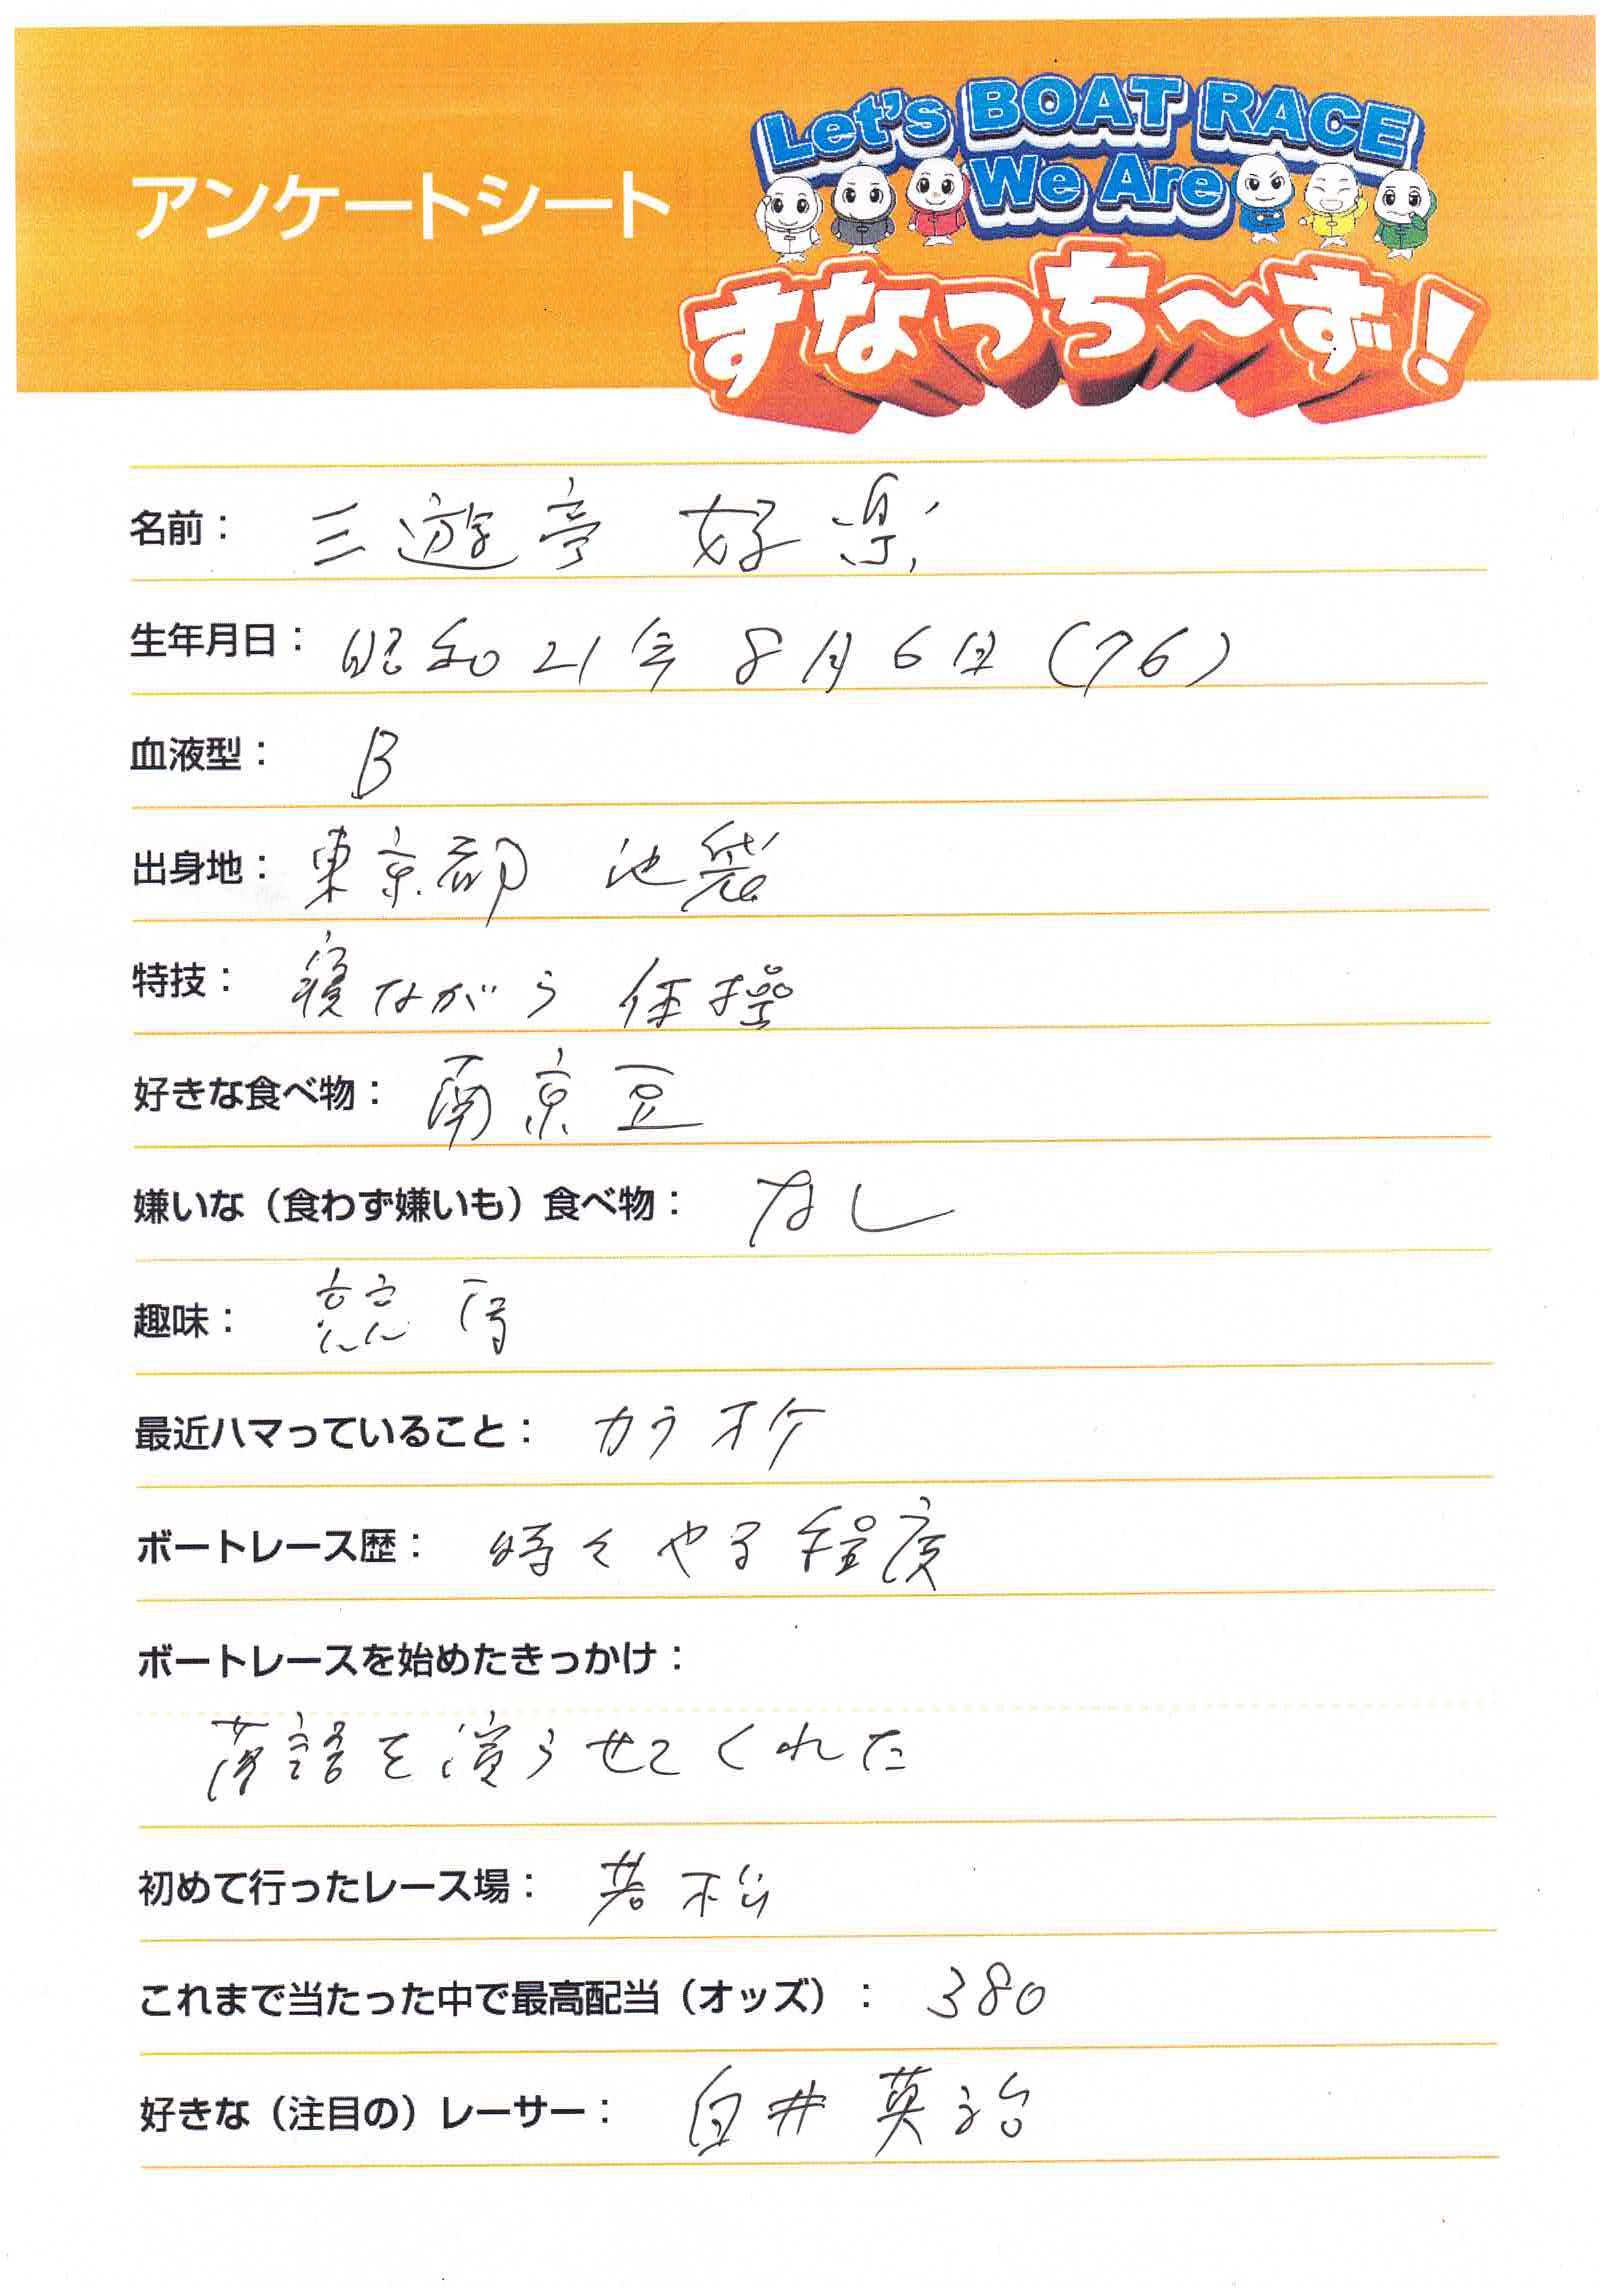 アンケートシート
Let's BOAT RACE
We Are
すなっち～ず!
名前： 三遊亭 好楽
生年月日： 昭和21年8月6日(76)
血液型： B
出身地： 東京都 池袋
特技： 寝ながら 体操
好きな食べ物： 南京豆
嫌いな（食わず嫌いも）食べ物： なし
趣味： 競馬
最近ハマっていること： カラオケ
ボートレース歴： 時々やる程度
ボートレースを始めたきっかけ：
落語を演らせてくれた
初めて行ったレース場： 若松
これまで当たった中で最高配当（オッズ）： 380
好きな（注目の）レーサー： 白井英治